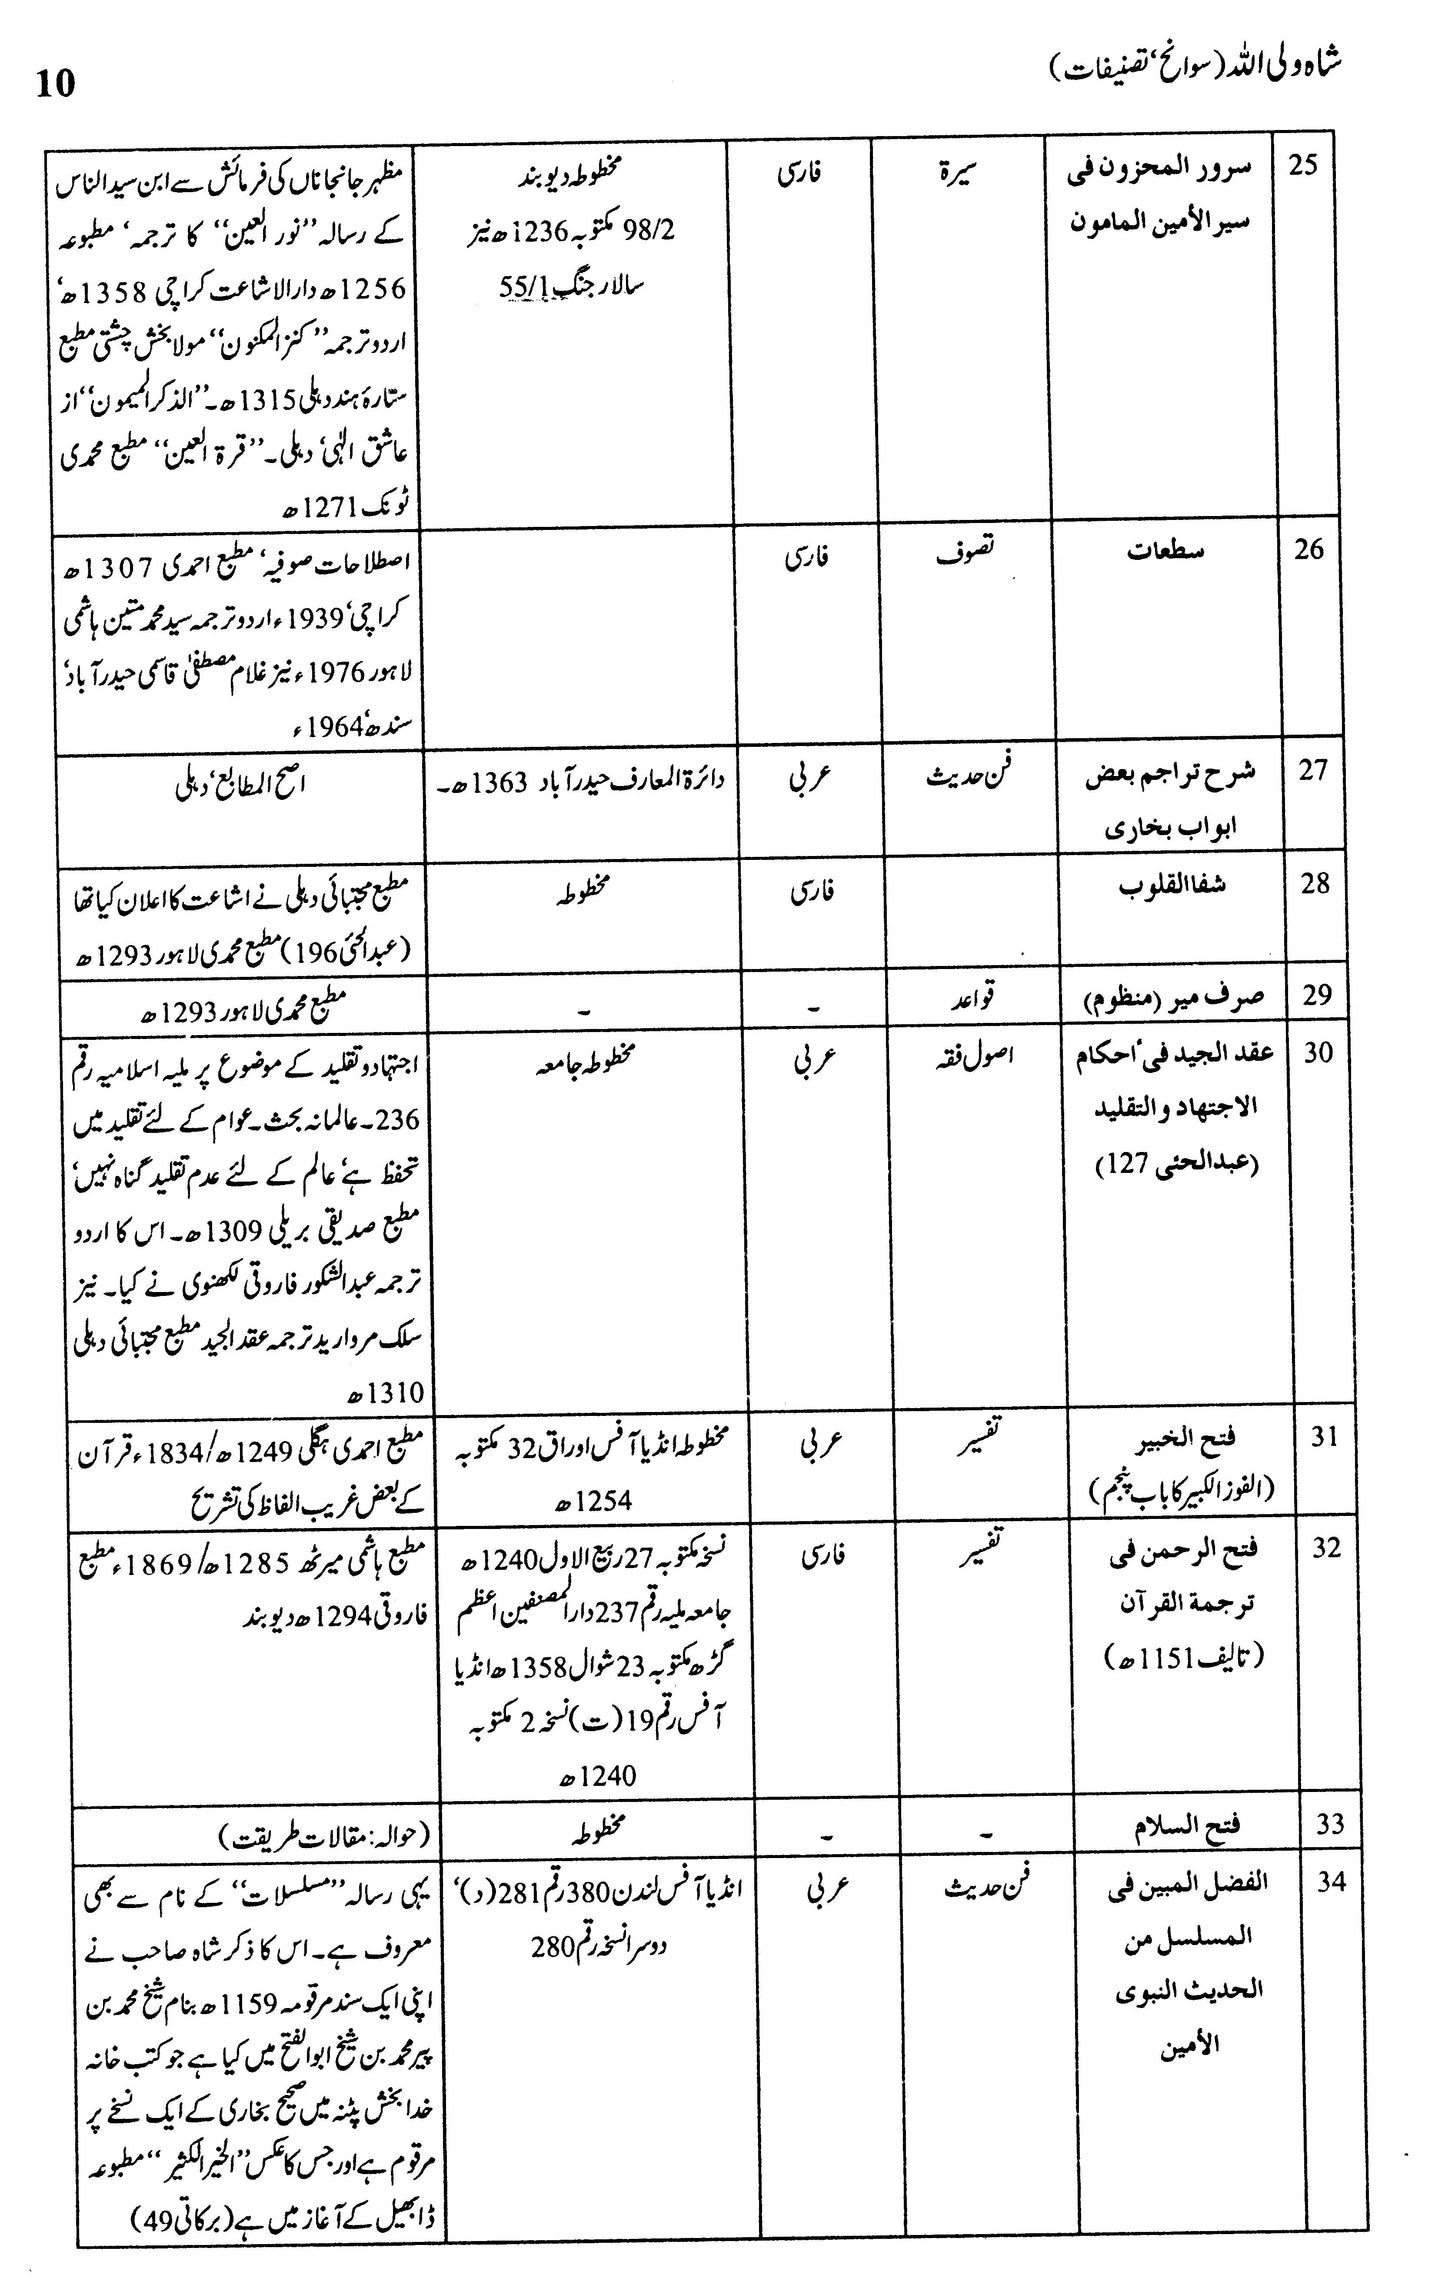 شاہ ولی اللہ (سوانح، تصنیفات)
10
25
سرور المحزون فی
سیر الأمین المامون
سیرۃ
فارسی
مخطوطہ دیوبند
98/2 مکتوبہ 1236ھ نیز
سالار جنگ 55/1
مظہر جانجاناں کی فرمائش سے ابن سید الناس
کے رسالہ ’’نور العین‘‘ کا ترجمہ، مطبوعہ
1256ھ دارالاشاعت کراچی 1358ھ،
اردو ترجمہ ’’کنز المکنون‘‘ مولا بخش چشتی مطبع
ستارۂ ہند دہلی 1315ھ۔ ’’الذکر المیمون‘‘ از
عاشق الٰہی، دہلی۔ ’’قرۃ العین‘‘ مطبع محمدی
ٹونک 1271ھ
26
سطعات
تصوف
فارسی
اصطلاحات صوفیہ، مطبع احمدی 1307ھ
کراچی، 1939ء اردو ترجمہ سید محمد متین ہاشمی
لاہور 1976ء نیز غلام مصطفیٰ قاسمی حیدرآباد،
سندھ، 1964ء
27
شرح تراجم بعض
ابواب بخاری
فن حدیث
عربی
دائرۃ المعارف حیدرآباد 1363ھ۔
اصح المطابع، دہلی
28
شفا القلوب
فارسی
مخطوطہ
مطبع مجتبائی دہلی نے اشاعت کا اعلان کیا تھا
(عبدالحئی 196) مطبع محمدی لاہور 1293ھ
29
صرف میر (منظوم)
قواعد
-
-
مطبع محمدی لاہور 1293ھ
30
عقد الجید فی أحکام
الاجتهاد والتقلید
(عبدالحئی 127)
اصول فقہ
عربی
مخطوطہ جامعہ
اجتہاد و تقلید کے موضوع پر ملیہ اسلامیہ رقم
236۔ عالمانہ بحث۔ عوام کے لئے تقلید میں
تحفظ ہے، عالم کے لئے عدم تقلید گناہ نہیں،
مطبع صدیقی بریلی 1309ھ۔ اس کا اردو
ترجمہ عبدالشکور فاروقی لکھنوی نے کیا۔ نیز
سلک مروارید ترجمہ عقد الجید مطبع مجتبائی دہلی
1310ھ
31
فتح الخبیر
(الفوز الکبیر کا باب پنجم)
تفسیر
عربی
مخطوطہ انڈیا آفس اوراق 32 مکتوبہ
1254ھ
مطبع احمدی ہگلی 1249ھ/1834ء قرآن
کے بعض غریب الفاظ کی تشریح
32
فتح الرحمن فی
ترجمة القرآن
(تالیف 1151ھ)
تفسیر
فارسی
نسخہ مکتوبہ 27 ربیع الاول 1240ھ
جامعہ ملیہ رقم 237 دارالمصنفین اعظم
گڑھ مکتوبہ 23 شوال 1358ھ انڈیا
آفس رقم 19 (ت) نسخہ 2 مکتوبہ
1240ھ
مطبع ہاشمی میرٹھ 1285ھ/1869ء مطبع
فاروقی 1294ھ دیوبند
33
فتح السلام
-
-
مخطوطہ
(حوالہ: مقالات طریقت)
34
الفضل المبین فی
المسلسل من
الحدیث النبوی
الأمین
فن حدیث
عربی
انڈیا آفس لندن 380 رقم 281 (د)،
دوسرا نسخہ رقم 280
یہی رسالہ ’’مسلسلات‘‘ کے نام سے بھی
معروف ہے۔ اس کا ذکر شاہ صاحب نے
اپنی ایک سند مرقومہ 1159ھ بنام شیخ محمد بن
پیر محمد بن شیخ ابوالفتح میں کیا ہے جو کتب خانہ
خدا بخش پٹنہ میں صحیح بخاری کے ایک نسخے پر
مرقوم ہے اور جس کا عکس ’’الخیر الکثیر‘‘ مطبوعہ
ڈابھیل کے آغاز میں ہے (برکاتی 49)